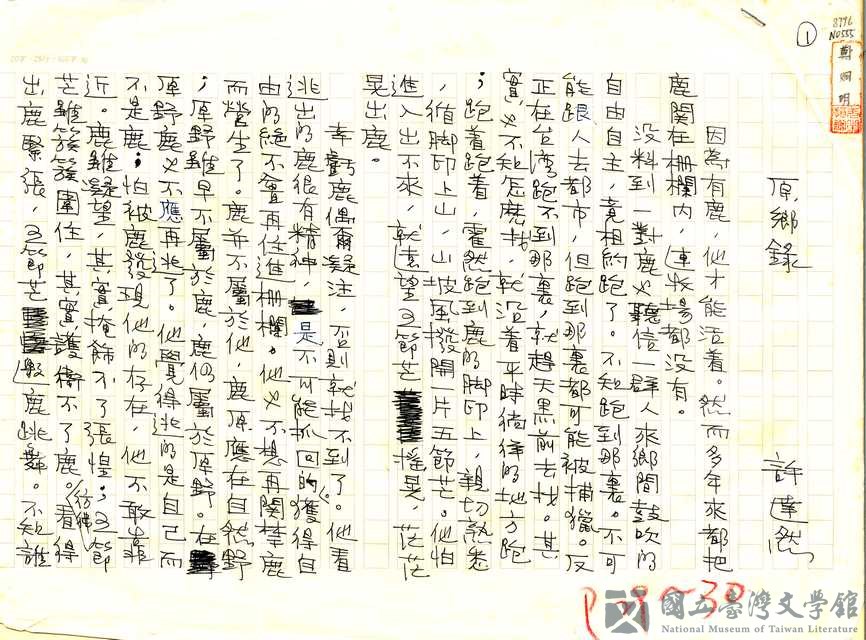 8796
N0555
鄭烱明
1
原鄉錄
許達然
因為有鹿，他才能活着。然而多年來都把
鹿関在柵欄內，連牧場都沒有。
沒料到一對鹿也聽信一群人來鄉間鼓吹的
自由自主，竟相約跑了。不知跑到那裏。不可
能跟人去都市，但跑到那裏都可能被捕獵。反
正在台湾跑不到那裏，就趕天黑前去找。其
實也不知怎麽找，就沿着平時徜徉的地方跑
；跑着跑着，霍然跑到鹿的脚印上，親切熟悉
，循脚印上山，山坡風撥開一片五節芒。他怕
進入出不來，就凝望五節芒搖晃，茫茫
晃出鹿。
幸虧鹿偶爾凝注，否則就找不到了。他看
逃出的鹿很有精神，是不可能抓回的。獲得自
由的絕不會再住進柵欄。他也不想再関禁鹿
而營生了。鹿并不屬於他，鹿原應在自然野
；原野雖早不屬於鹿，鹿仍屬於原野。在
原野鹿也不應再逃了。他覺得逃的是自己而
不是鹿；怕被鹿發現他的存在，他不敢靠
近。鹿雖凝望，其實掩飾不了張惶；五節
芒雖簇簇圍住，其實護衛不了鹿。看得
彷彿
出鹿緊張，五節芒搬鹿跳舞。不知誰
P29-30
國立臺灣文學館
National Museum of Taiwan Literature